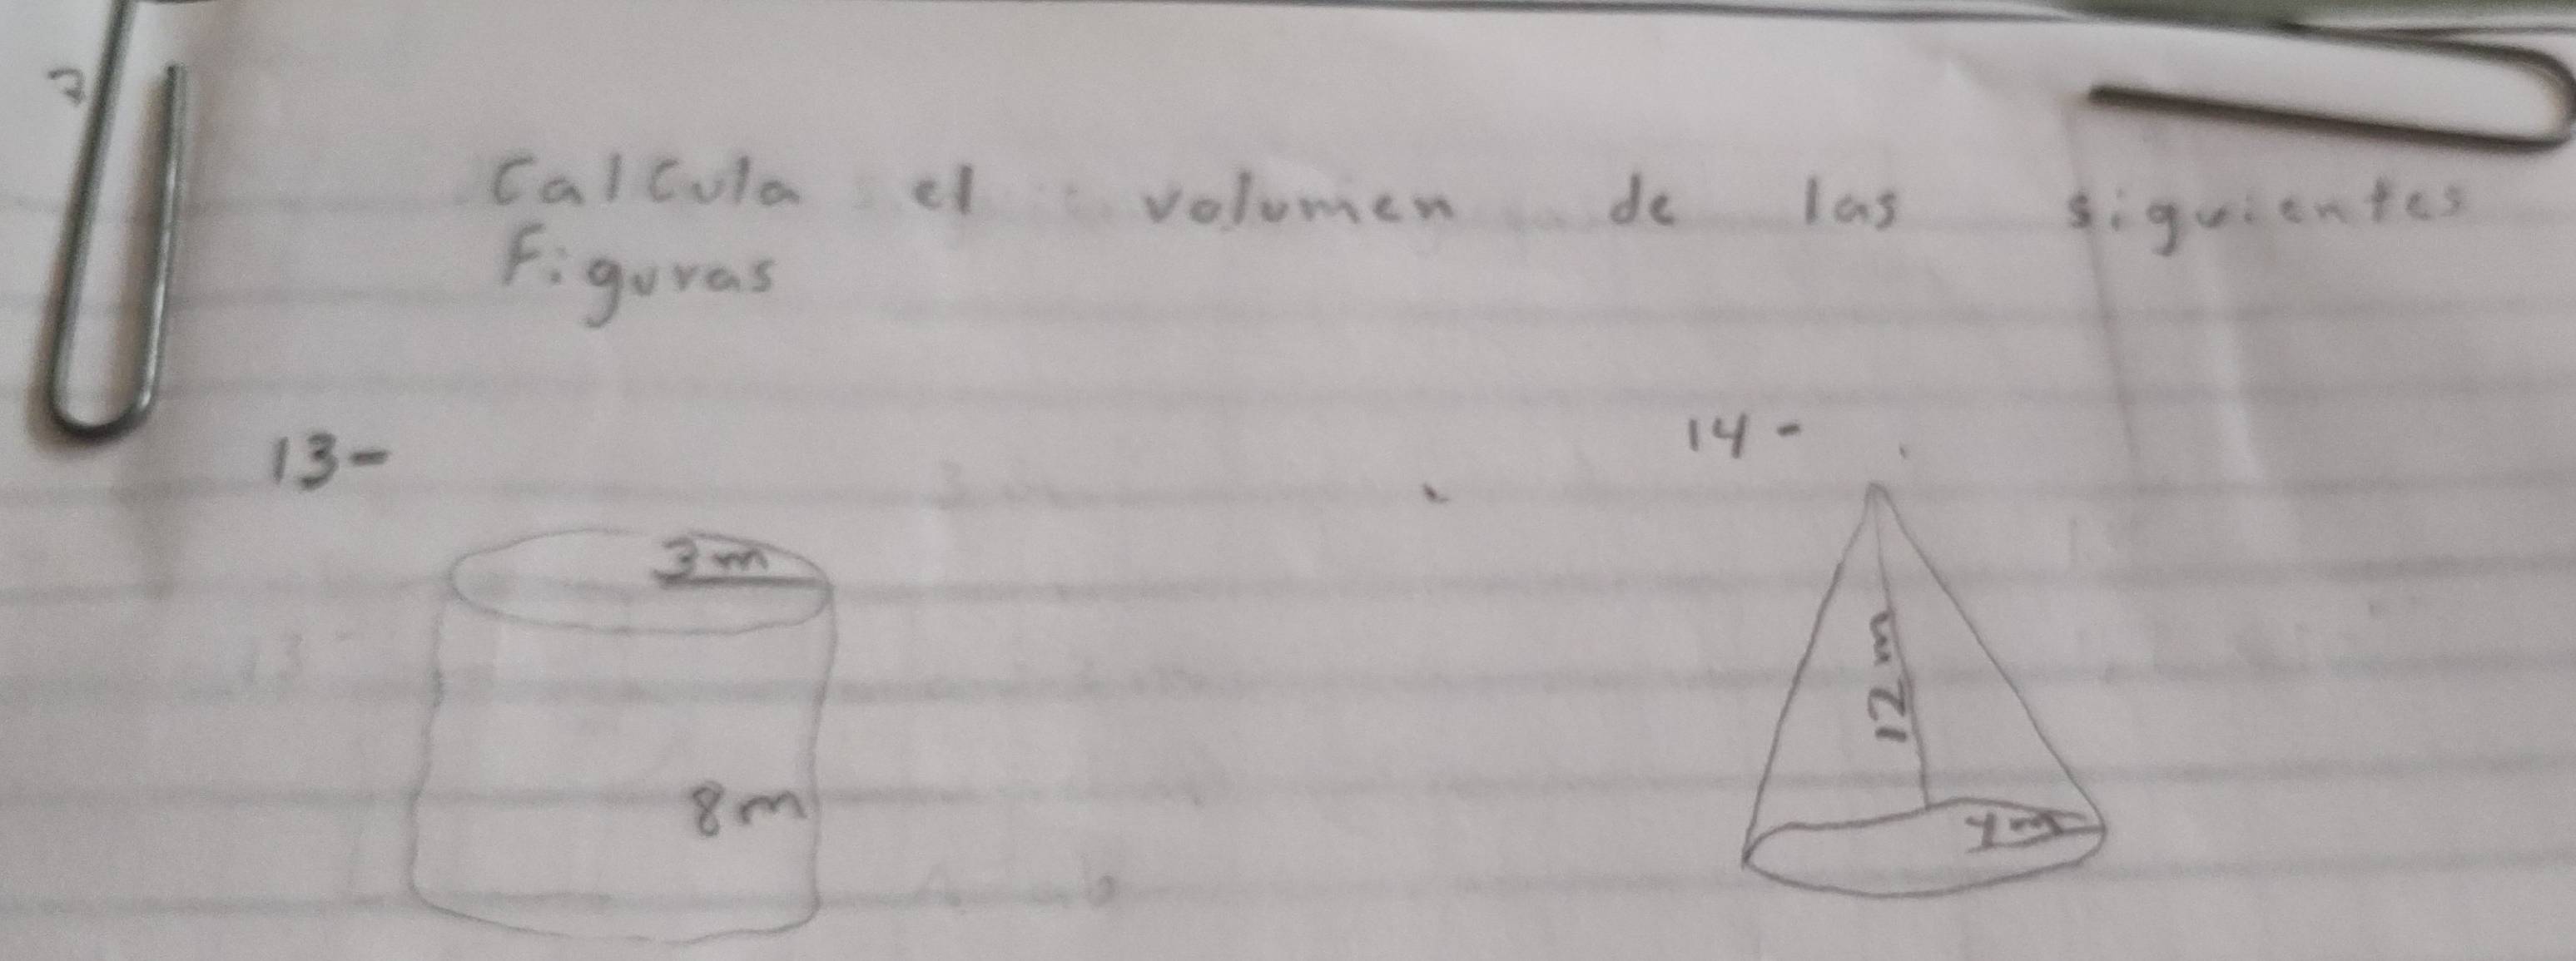 Calcula el volumen de las siguientes
Figuras
13-
14-
3m
12m
8m
4m